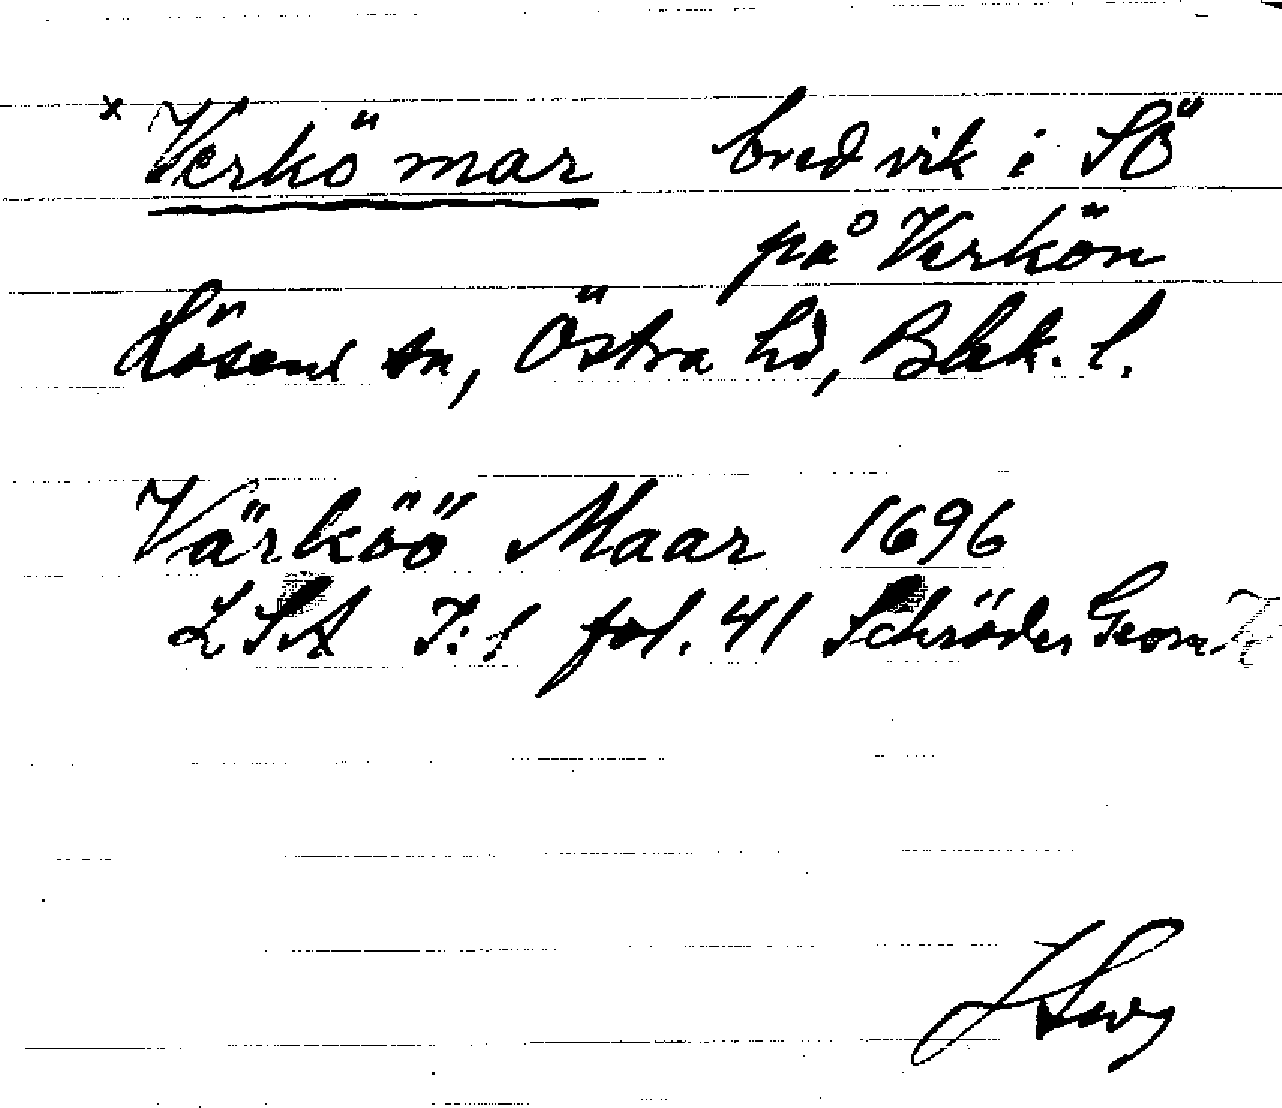 x Verkö mar bred vik i SÖ
på Verkön
Lösens sn, Östra hd, Blek. l.
Värköö Maar 1696
LSA I:1 fol. 41 Schröder Geom.